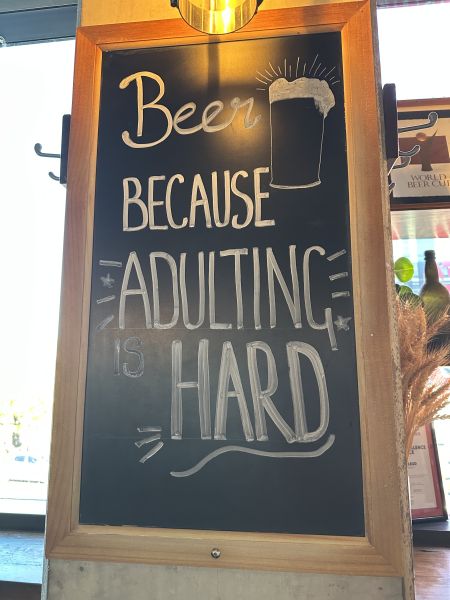 Beer
BECAUSE
ADULTING
IS
HARD
WORLD
BEER CUP